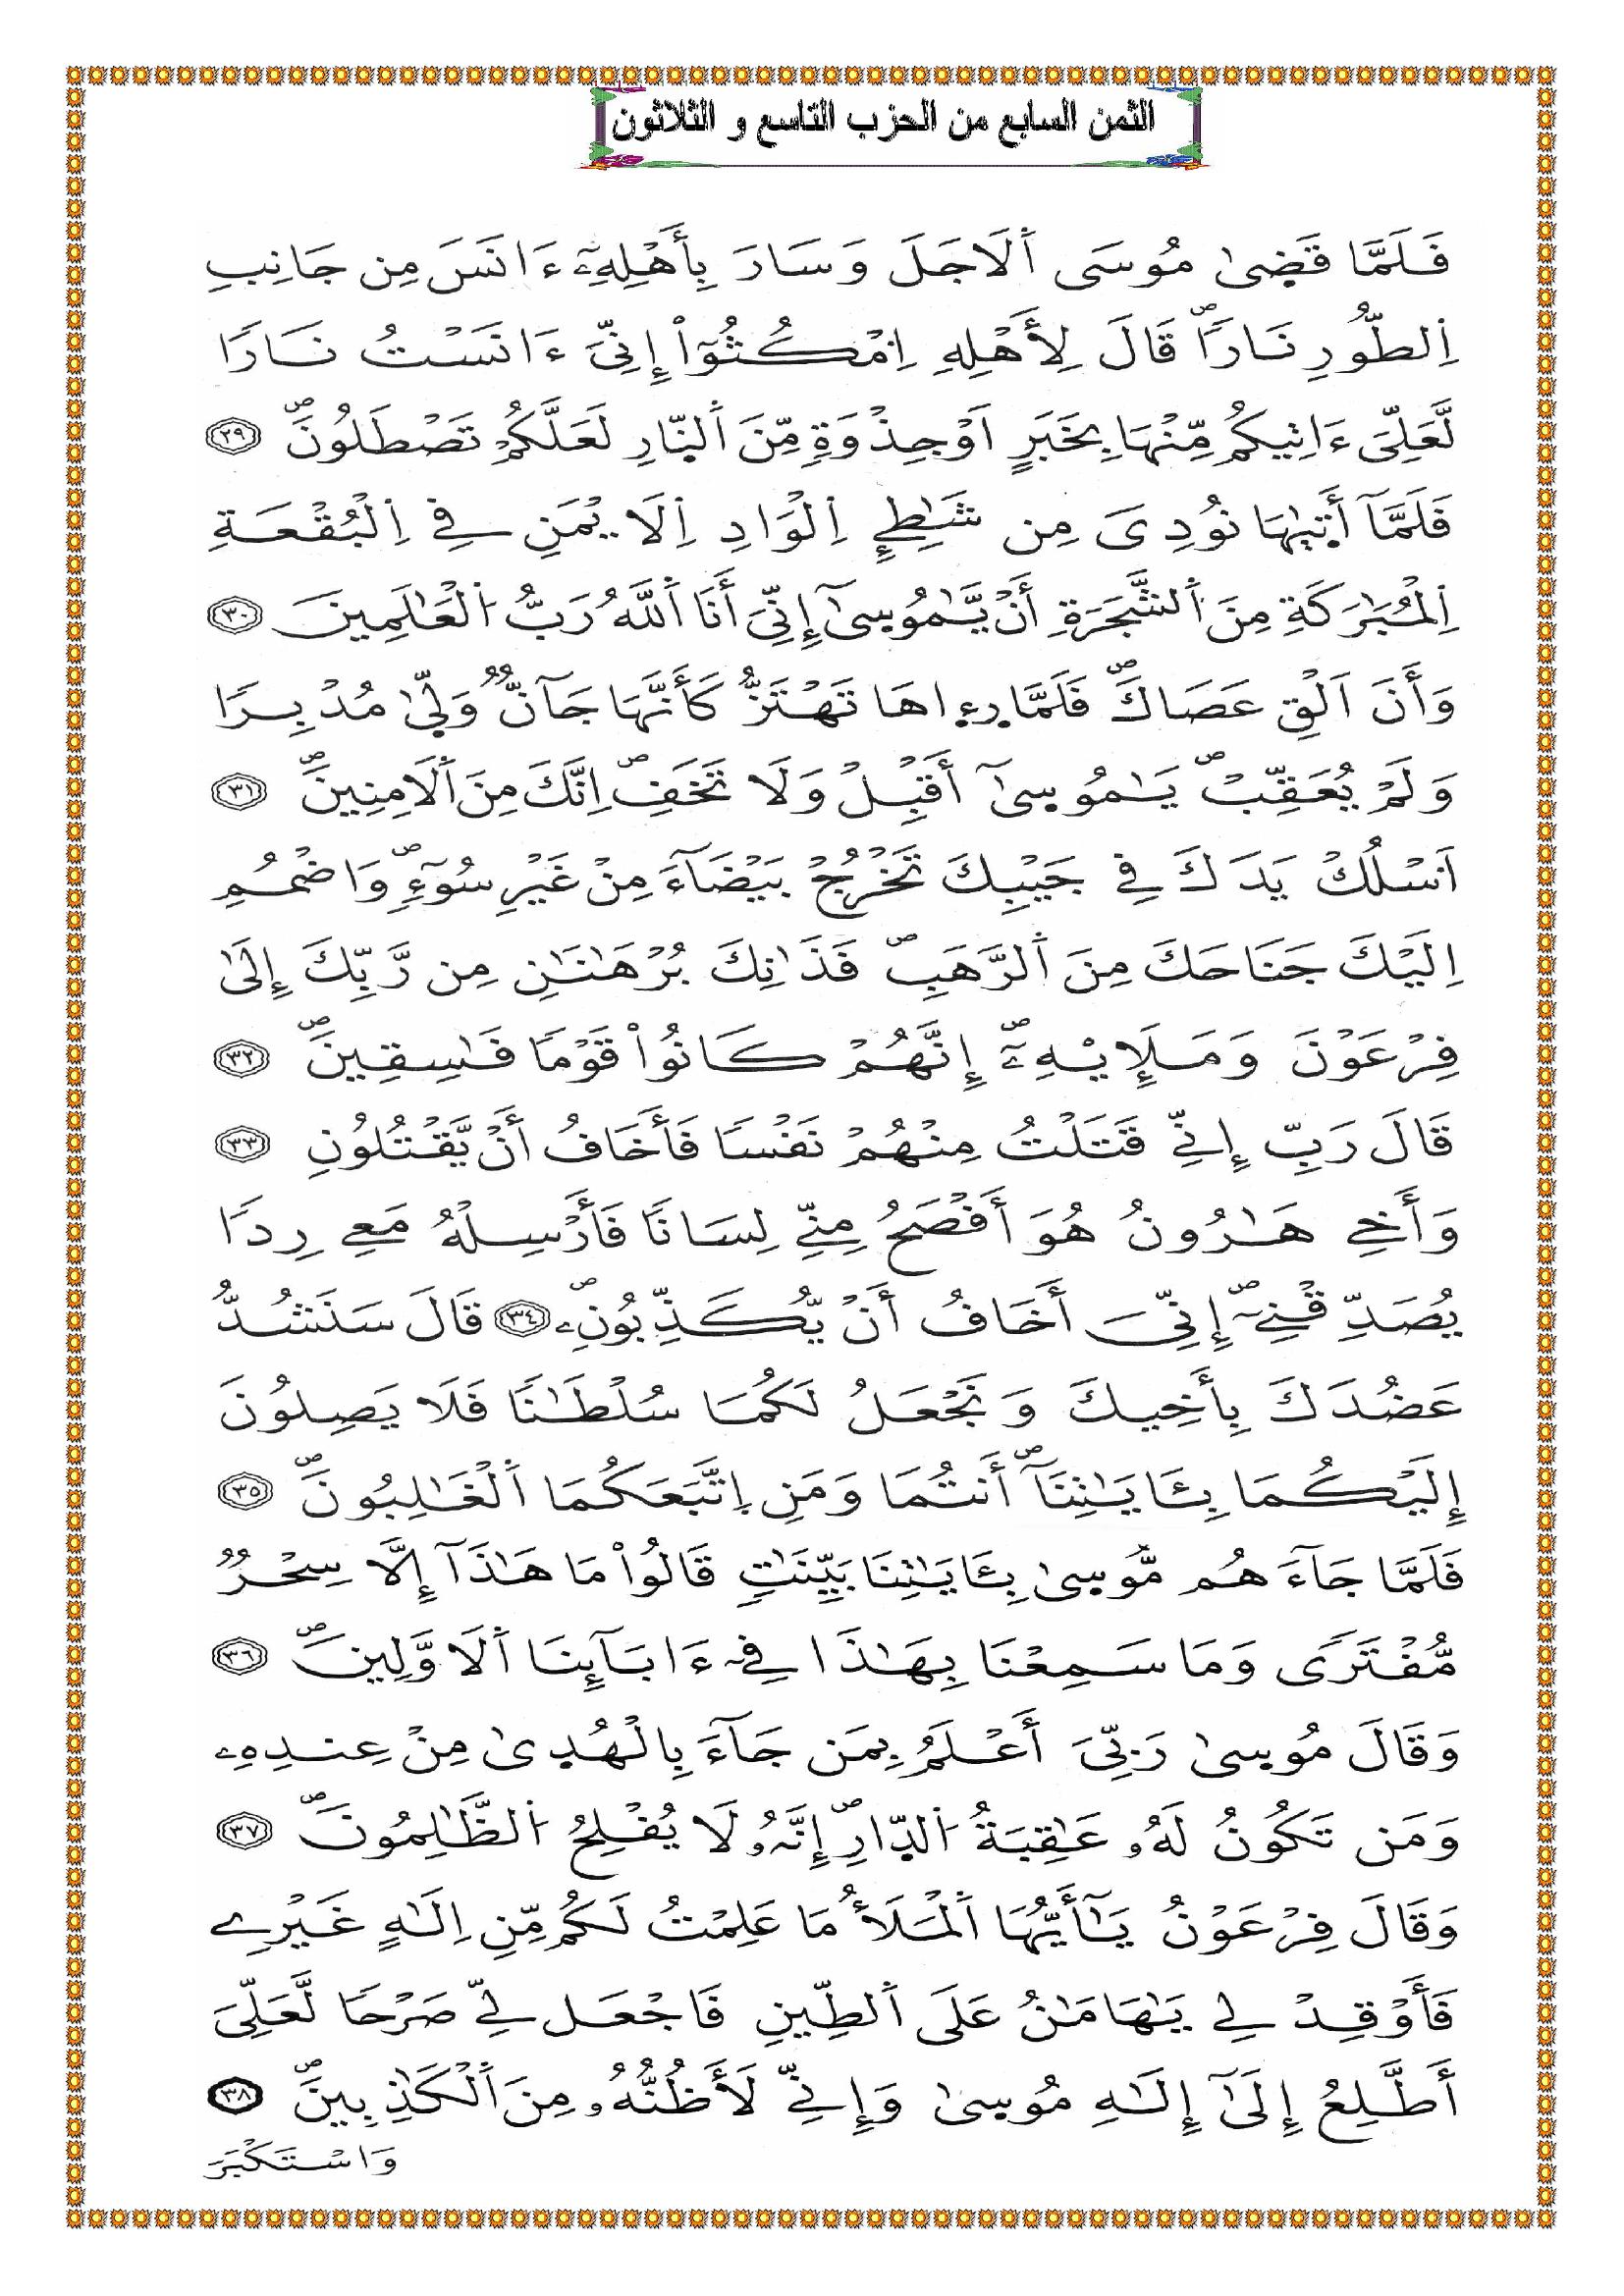 الثمن السابع من الحزب التاسع و الثلاثون
فَلَمَّا قَضِىٰ مُوسَى اَ۬لَاجَلَ وَسَارَ بِأَهْلِهِۦٓ ءَانَسَ مِن جَانِبِ
اِ۬لطُّورِ نَارٗاۖ قَالَ لِأَهْلِهِ اِ۟مْكُثُوٓاْ إِنِّيَ ءَانَسْتُ نَارٗا
لَّعَلِّيَ ءَاتِيكُم مِّنْهَا بِخَبَرٍ اَوْ جِذْوَةٖ مِّنَ اَ۬لنّ۪ارِ لَعَلَّكُمْ تَصْطَلُونَۖ ٢٩
فَلَمَّآ أَت۪ىٰهَا نُودِىَ مِن شَٰطِےِٕ اِ۬لْوَادِ اِ۬لَايْمَنِ فِے اِ۬لْبُقْعَةِ
اِ۬لْمُبَٰرَكَةِ مِنَ اَ۬لشَّجَرَةِ أَنْ يَّٰمُوس۪ىٰٓ إِنِّيَ أَنَا اَ۬للَّهُ رَبُّ اُ۬لْعَٰلَمِينَ ٣٠
وَأَنَ اَلْقِ عَصَاكَۖ فَلَمَّا ر۪ء۪اهَا تَهْتَزُّ كَأَنَّهَا جَآنّٞ وَلّ۪ىٰ مُدْبِرٗا
وَلَمْ يُعَقِّبْۖ يَٰمُوس۪ىٰٓ أَقْبِلْ وَلَا تَخَفِۖ اِنَّكَ مِنَ اَ۬لَامِنِينَۖ ٣١
اَ۟سْلُكْ يَدَكَ فِے جَيْبِكَ تَخْرُجْ بَيْضَآءَ مِنْ غَيْرِ سُوٓءٖۖ وَاضْمُمِ
اِلَيْكَ جَنَاحَكَ مِنَ اَ۬لرَّهَبِۖ فَذَٰنِكَ بُرْهَٰنَٰنِ مِن رَّبِّكَ إِلَىٰ
فِرْعَوْنَ وَمَلَإِيْهِۦٓۖ إِنَّهُمْ كَانُواْ قَوْمٗا فَٰسِقِينَۖ ٣٢
قَالَ رَبِّ إِنِّے قَتَلْتُ مِنْهُمْ نَفْسٗا فَأَخَافُ أَنْ يَّقْتُلُونِ ٣٣
وَأَخِے هَٰرُونُ هُوَ أَفْصَحُ مِنِّے لِسَانٗا فَأَرْسِلْهُ مَعِے رِدٗا
يُصَدِّقْنِےٓۖ إِنِّيَ أَخَافُ أَنْ يُّكَذِّبُونِۦۖ ٣٤ قَالَ سَنَشُدُّ
عَضُدَكَ بِأَخِيكَ وَنَجْعَلُ لَكُمَا سُلْطَٰنٗا فَلَا يَصِلُونَ
إِلَيْكُمَا بِـَٔايَٰتِنَآۖ أَنتُمَا وَمَنِ اِ۪تَّبَعَكُمَا اَ۬لْغَٰلِبُونَۖ ٣٥
فَلَمَّا جَآءَهُم مُّوس۪ىٰ بِـَٔايَٰتِنَا بَيِّنَٰتٖ قَالُواْ مَا هَٰذَآ إِلَّا سِحْرٞ
مُّفْتَرٗى وَمَا سَمِعْنَا بِهَٰذَا فِےٓ ءَابَآئِنَا اَ۬لَاوَّلِينَۖ ٣٦
وَقَالَ مُوس۪ىٰ رَبِّيَ أَعْلَمُ بِمَن جَآءَ بِالْهُد۪ىٰ مِنْ عِندِهِۦ
وَمَن تَكُونُ لَهُۥ عَٰقِبَةُ اُ۬لدّ۪ارِۖ إِنَّهُۥ لَا يُفْلِحُ اُ۬لظَّٰلِمُونَۖ ٣٧
وَقَالَ فِرْعَوْنُ يَٰٓأَيُّهَا اَ۬لْمَلَأُ مَا عَلِمْتُ لَكُم مِّنِ اِلَٰهٍ غَيْرِے
فَأَوْقِدْ لِے يَٰهَامَٰنُ عَلَى اَ۬لطِّينِ فَاجْعَل لِّے صَرْحٗا لَّعَلِّيَ
أَطَّلِعُ إِلَىٰٓ إِلَٰهِ مُوس۪ىٰ وَإِنِّے لَأَظُنُّهُۥ مِنَ اَ۬لْكَٰذِبِينَۖ ٣٨
وَاسْتَكْبَرَ